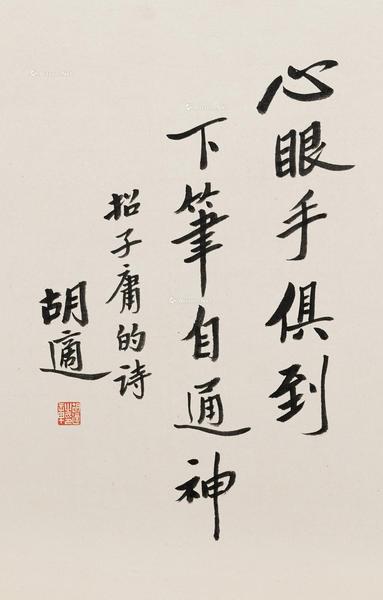 心眼手俱到
下筆自通神
招子庸的詩
胡適